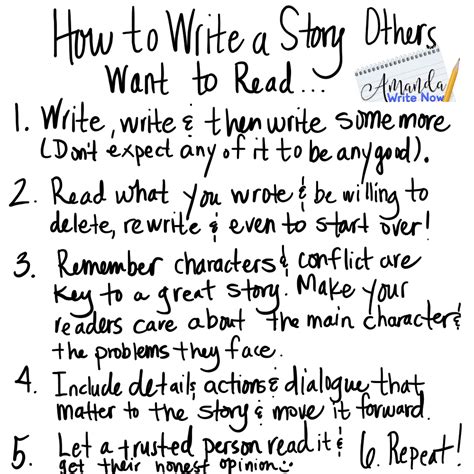 How to Write a Story Others
Want to Read...
Amanda
Write Now
1. Write, write & then write some more
(Don't expect any of it to be any good).
2. Read what you wrote & be willing to
delete, rewrite & even to start over!
3. Remember characters & conflict are
key to a great story. Make your
readers care about the main character &
the problems they face.
4. Include details, actions & dialogue that
matter to the story & move it forward.
5. Let a trusted person read it &
get their honest opinion
6. Repeat!